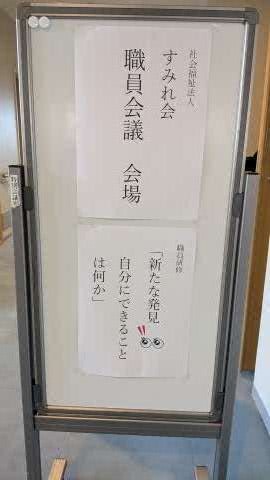 社会福祉法人
すみれ会
職員会議 会場
職員研修
「新たな発見
自分にできること
は何か」